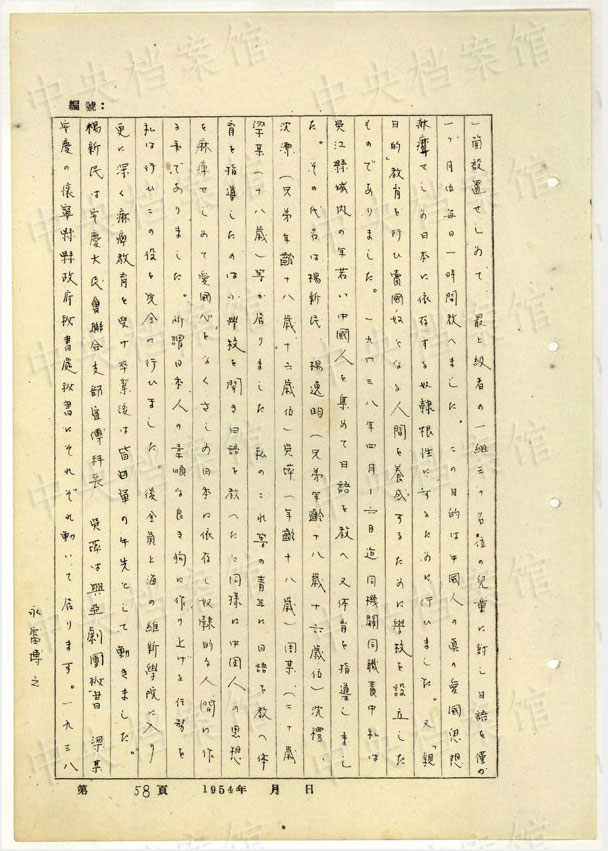 編號：
一箇設置せしめて、最上級者の一組三十名位の兒童に對し日語を僅か
一ヶ月位每日一時間教へました。この目的は中國人の真の愛國思想
麻痺せしめ日本に依存する奴隷根性にするために行いました。又「親
日的」教育を行ひ賣國奴となる人間を養成するために學校を設立した
ものでありました。一九三八年四月—六月迄同機關同職責中私は
吳江縣城内の年若い中國人を集めて日語を教へ又体育を指導しまし
た。その代名は楊新民 楊逸明(兄弟年齡十八歳十六歳位)沈禮、
沈漂(兄弟年齡十八歳十六歳位)吳萍(年齡十八歳)周某(二十歳
梁某(十八歳)等が居りました 私のこれ等の青年に日語を教へ体
育を指導したのは小學校を開き日語を教へたと同様に中国人の思想
を麻痺せしめて愛國心をなくさしめ日本に依存し奴隷的な人間に作
る事でありました。所謂日本人の柔順な良き狗に作り上げる任務を
私は行ひこの役を完全に行いました。後全員上海の維新學院に入り
更に深く麻痺教育を受け卒業後は皆日軍の手先として動きました。
楊新民は安慶大民會聯合支部宣傳科長 吳萍は興亞劇團秘書 梁某
安慶の懷寧縣縣政府秘書處秘書にそれぞれ動いて居ります。一九三八
永富博之
第 58頁 1954年 月 日
中央档案馆